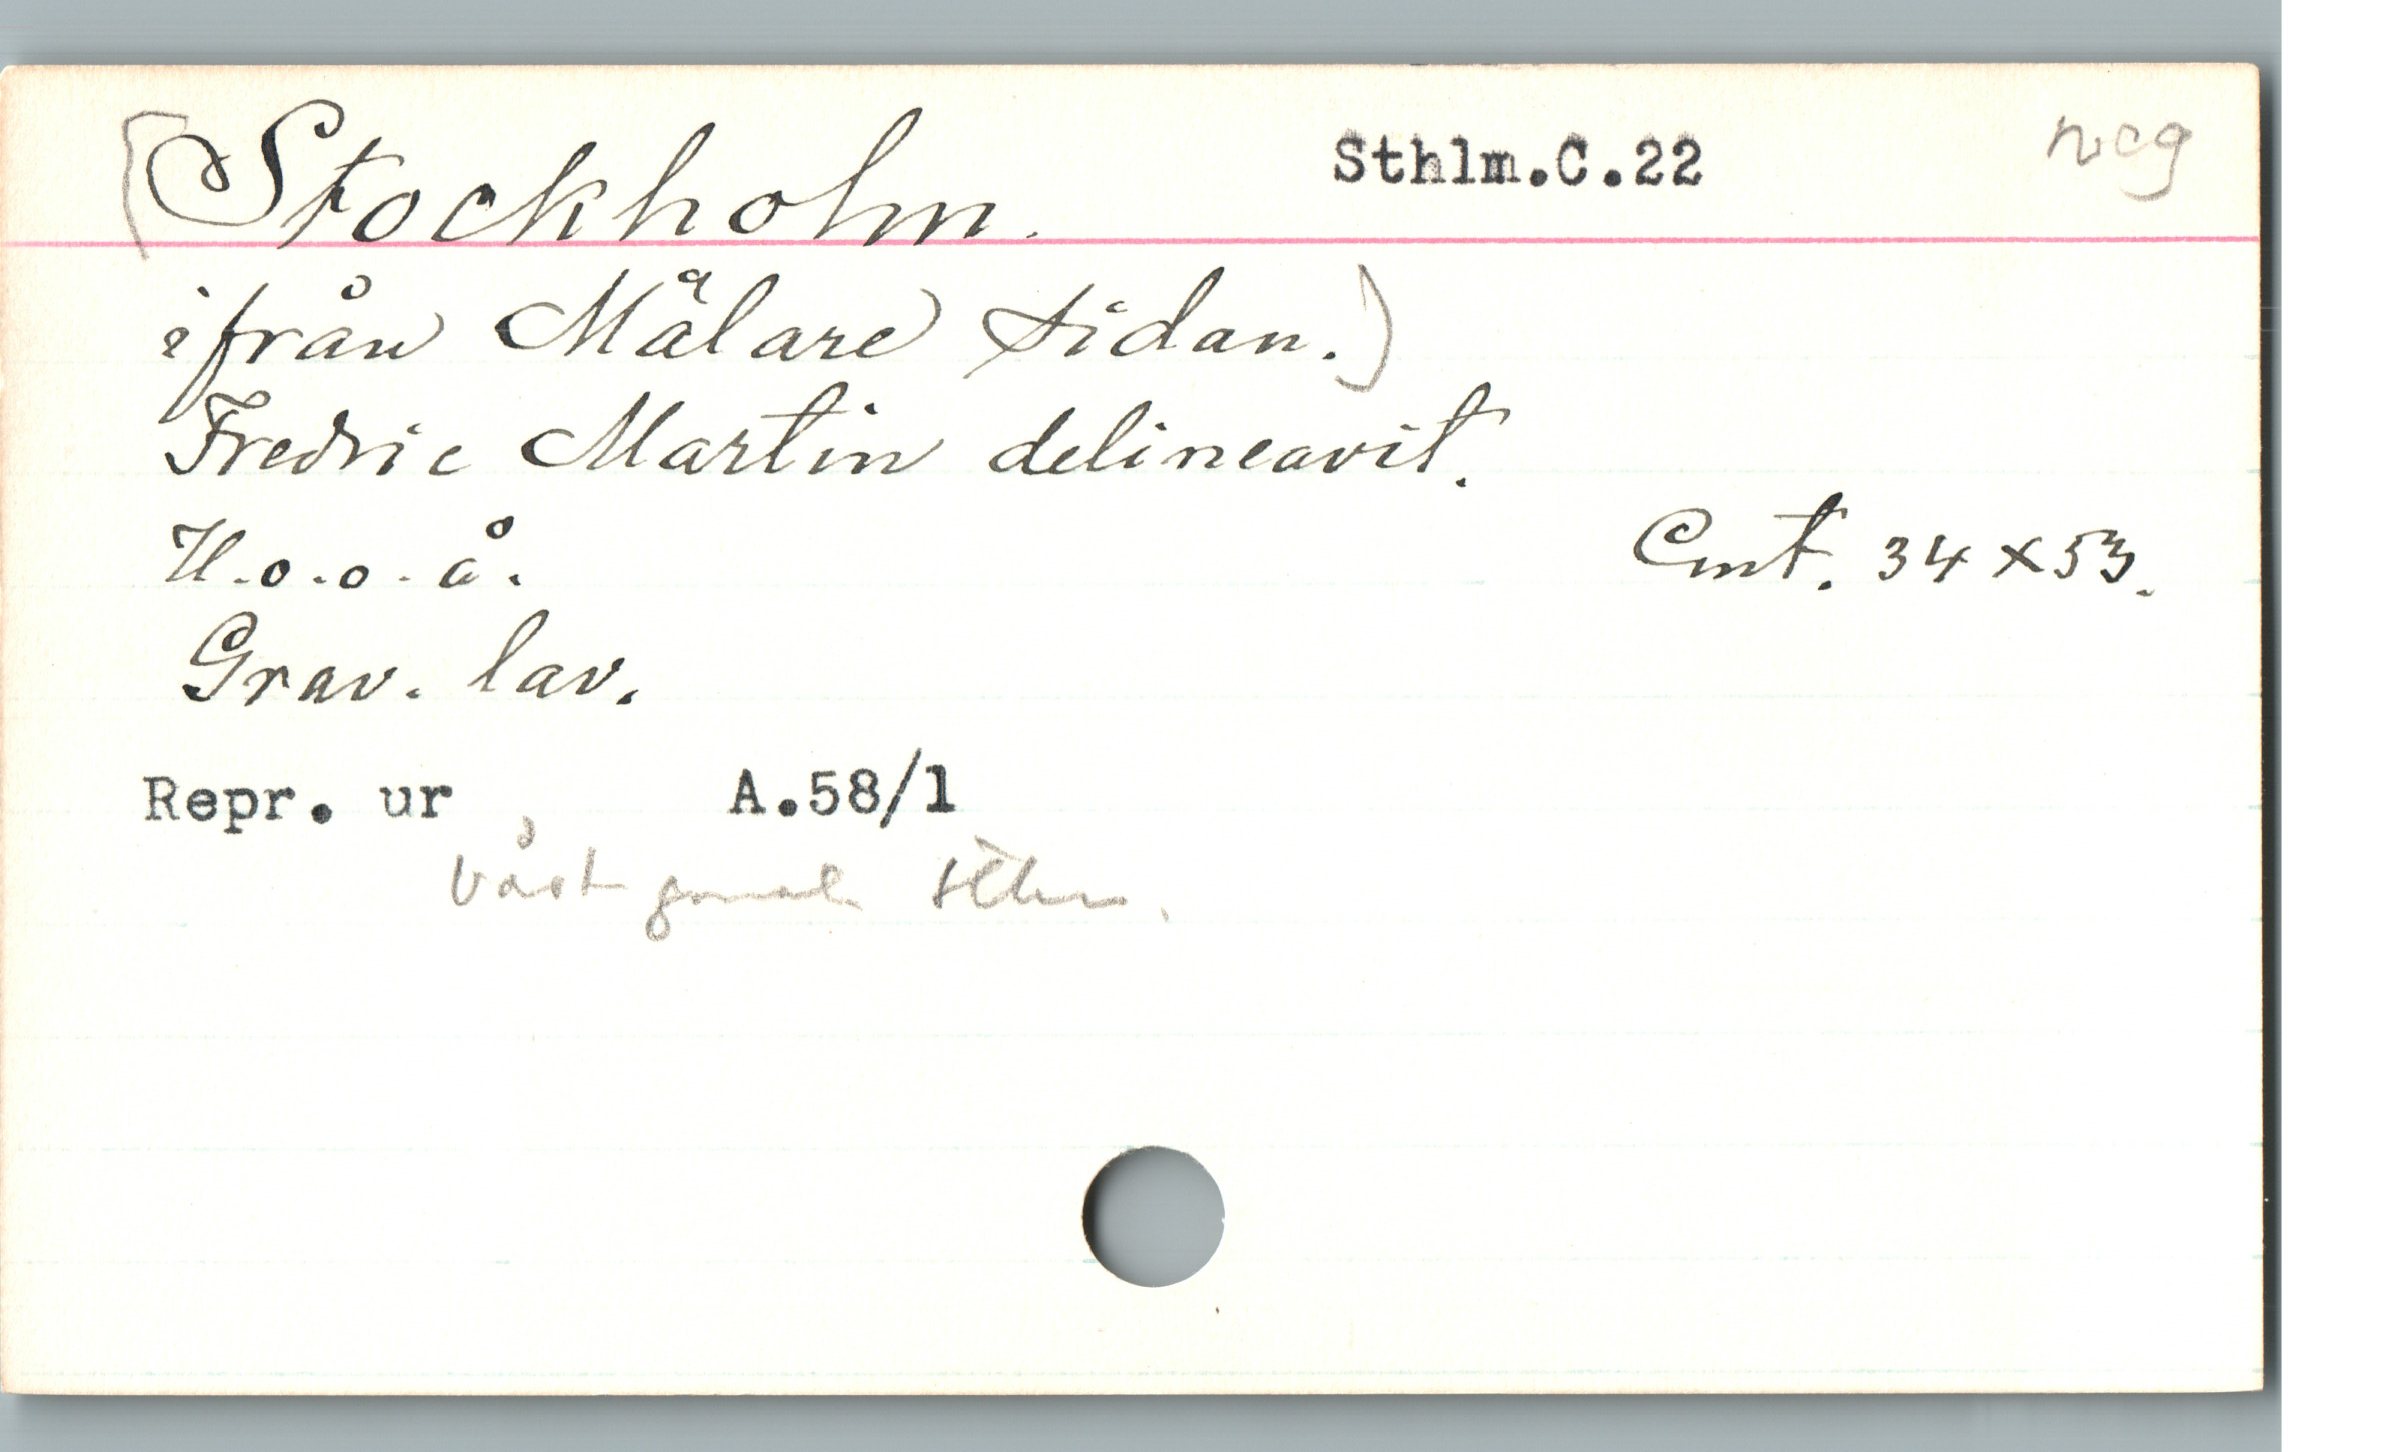 (Stockholm. Sthlm.C.22 neg
ifrån Mälare sidan.)
Fredric Martin delineavit.
U.o.o.å. Cmt. 34 x 53.
Grav. lav.
Repr. ur A.58/1
Vårt gamla Sthm.